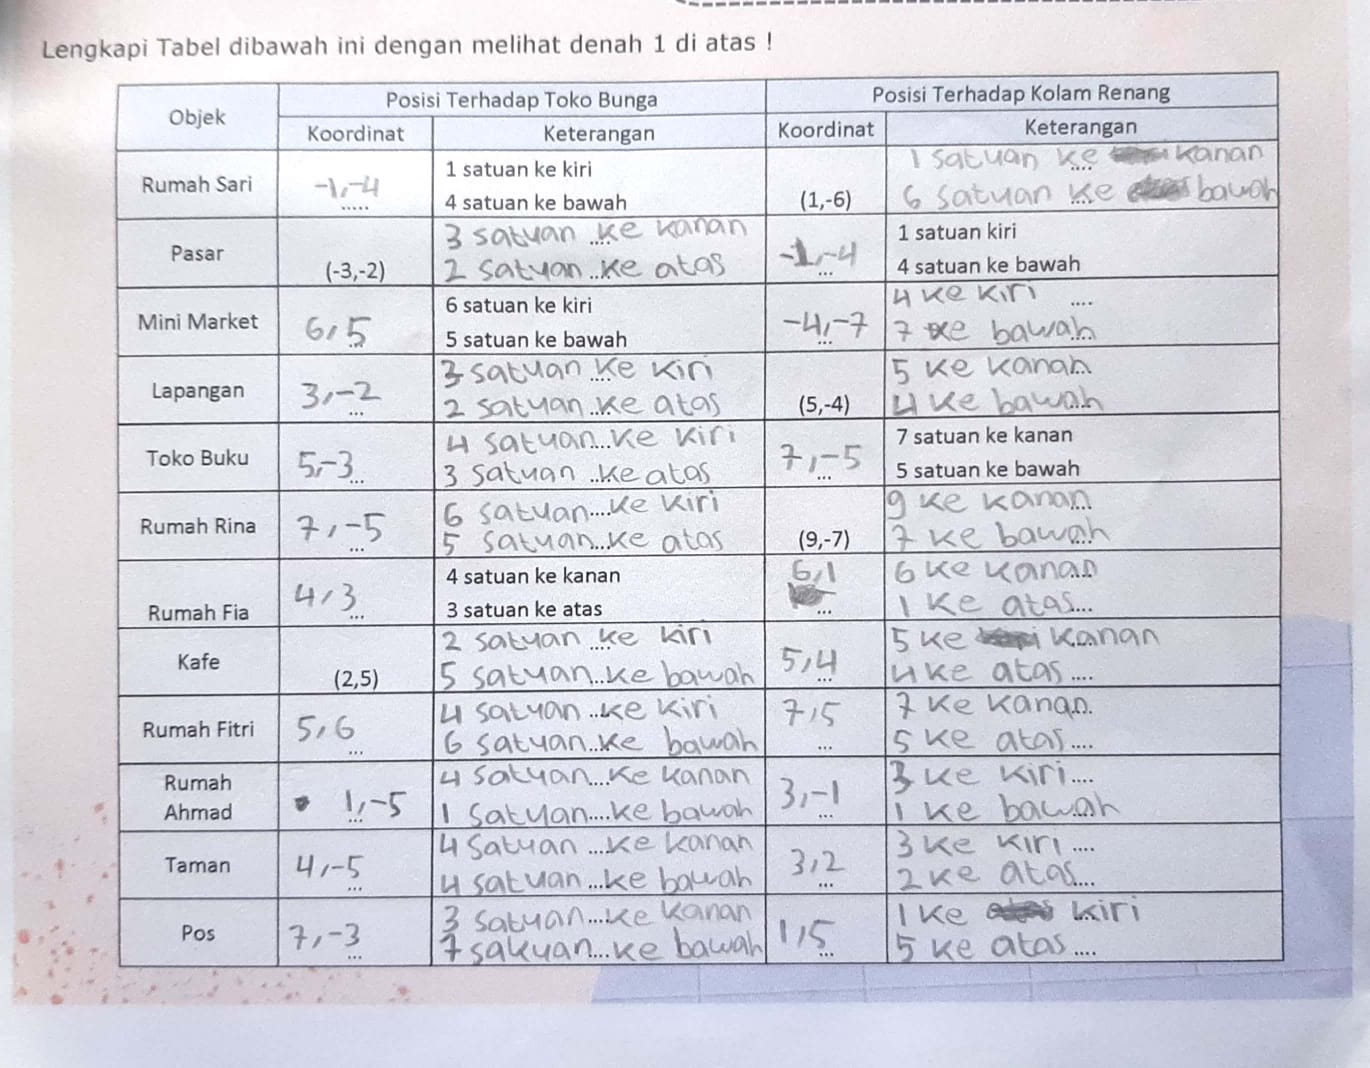 Lengkapi Tabel dibawah ini dengan melihat denah 1 di atas !
Objek
Posisi Terhadap Toko Bunga
Posisi Terhadap Kolam Renang
Koordinat
Keterangan
Koordinat
Keterangan
Rumah Sari
-1,-4
.....
1 satuan ke kiri
4 satuan ke bawah
(1,-6)
1 satuan ke kanan
6 satuan ke bawah
Pasar
(-3,-2)
3 satuan ke kanan
2 satuan ke atas
-1,-4
...
1 satuan kiri
4 satuan ke bawah
Mini Market
6,5
...
6 satuan ke kiri
5 satuan ke bawah
-4,-7
...
4 ke kiri ....
7 ke bawah
Lapangan
3,-2
...
3 satuan ke kiri
2 satuan ke atas
(5,-4)
5 ke kanan
4 ke bawah
Toko Buku
5,-3
...
4 satuan...ke kiri
3 satuan ...ke atas
7,-5
...
7 satuan ke kanan
5 satuan ke bawah
Rumah Rina
7,-5
...
6 satuan....ke kiri
5 satuan...ke atas
(9,-7)
9 ke kanan
7 ke bawah
Rumah Fia
4,3
...
4 satuan ke kanan
3 satuan ke atas
6,1
...
6 ke kanan
1 ke atas....
Kafe
(2,5)
2 satuan ke kiri
5 satuan...ke bawah
5,4
...
5 ke kanan
4 ke atas ....
Rumah Fitri
5,6
...
4 satuan ...ke kiri
6 satuan...ke bawah
7,5
...
7 ke kanan
5 ke atas....
Rumah
Ahmad
1,-5
...
4 satuan....ke kanan
1 satuan....ke bawah
3,-1
...
3 ke kiri....
1 ke bawah
Taman
4,-5
...
4 satuan ....ke kanan
4 satuan ...ke bawah
3,2
...
3 ke kiri ....
2 ke atas....
Pos
7,-3
...
3 satuan....ke kanan
7 sakuan....ke bawah
1,5
...
1 ke kiri
5 ke atas ....